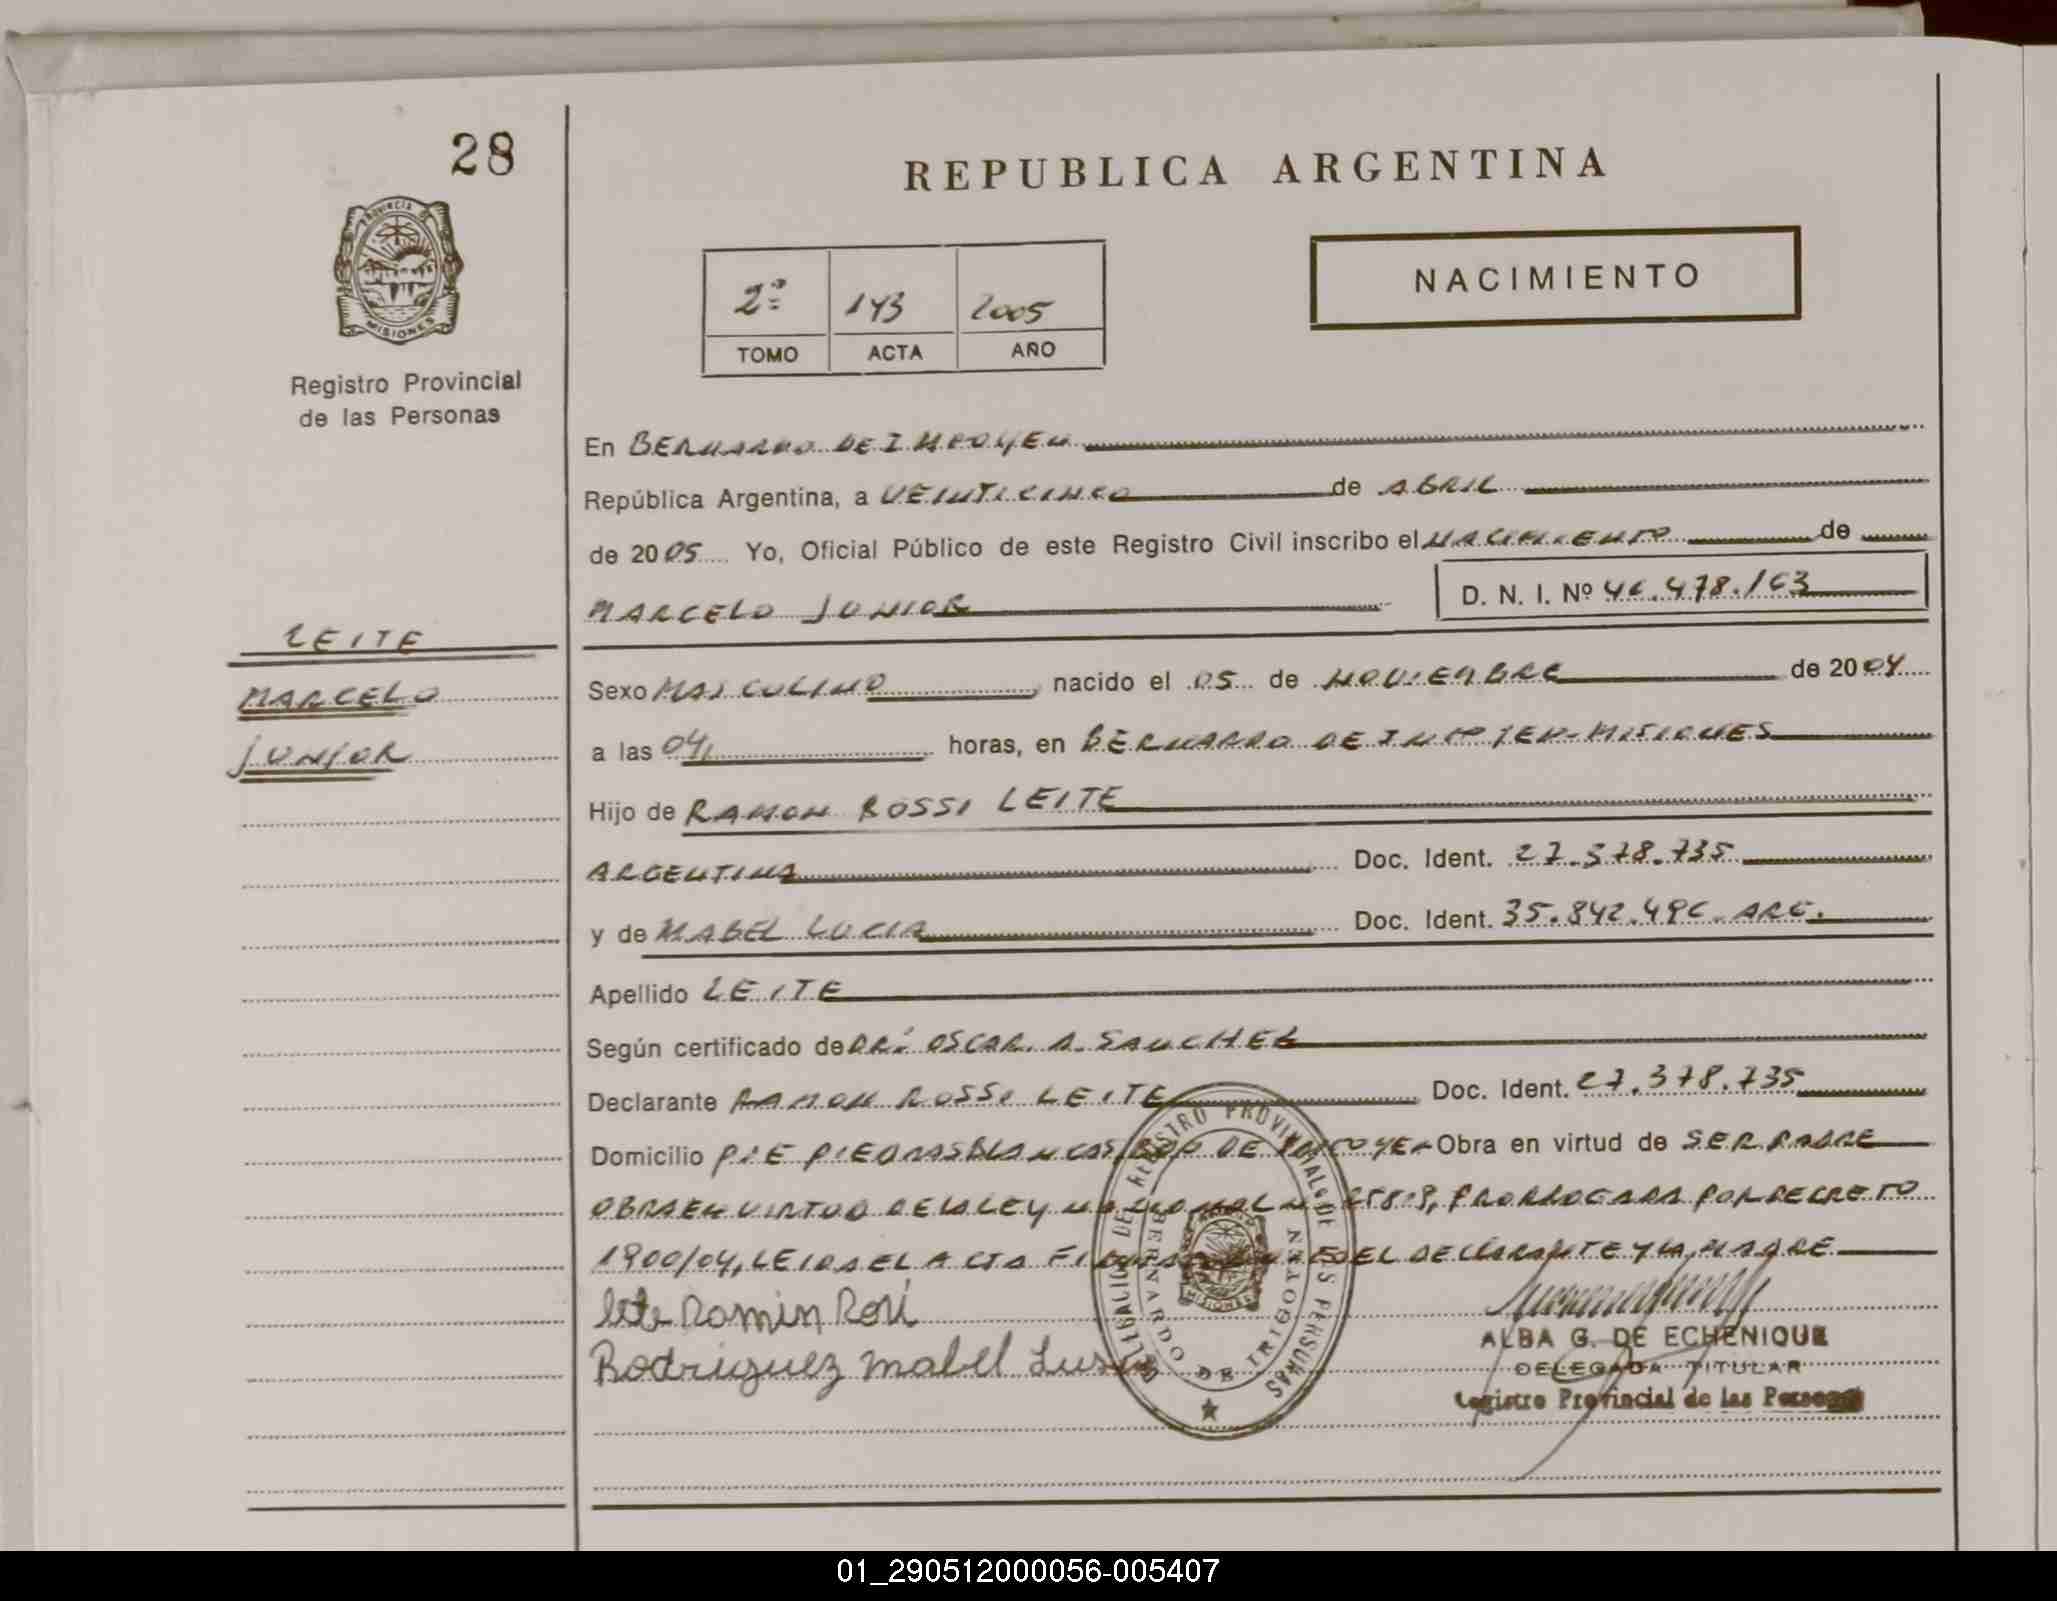 28
REPUBLICA ARGENTINA
PROVINCIA DE
MISIONES
Registro Provincial
de las Personas
2º 143 2005
TOMO ACTA AÑO
NACIMIENTO
En BERNARDO DE IRIGOYEN
República Argentina, a VEINTICINCO de ABRIL
de 2005 Yo, Oficial Público de este Registro Civil inscribo el NACIMIENTO de
MARCELO JUNIOR D. N. I. Nº 46.478.163
LEITE
MARCELO
JUNIOR
Sexo MASCULINO nacido el 05 de NOVIEMBRE de 2004
a las 04, horas, en BERNARDO DE IRIGOYEN-MISIONES
Hijo de RAMON ROSSI LEITE
ARGENTINA Doc. Ident. 27.378.735
y de MABEL LUCIA Doc. Ident. 35.842.496 ARG.
Apellido LEITE
Según certificado de DR: OSCAR A. SANCHEZ
Declarante RAMON ROSSI LEITE Doc. Ident. 27.378.735
Domicilio PJE PIEDRAS BLANCAS, BDO DE IRIGOYEN Obra en virtud de SER PADRE
OBRA EN VIRTUD DE LA LEY NACIONAL N PRORROGADA POR DECRETO
1900/04, LEIDA EL ACTA EL DECLARANTE Y LA MADRE
Leite Ramon Rosi
Rodriguez Mabel Lusia
DELEGACIO DEL REGISTRO PROVINCIAL DE LAS PERSONAS
BERNARDO DE IRIGOYEN
MISIONES
ALBA G. DE ECHENIQUE
DELEGADA TITULAR
Registro Provincial de las Personas
01_290512000056-005407